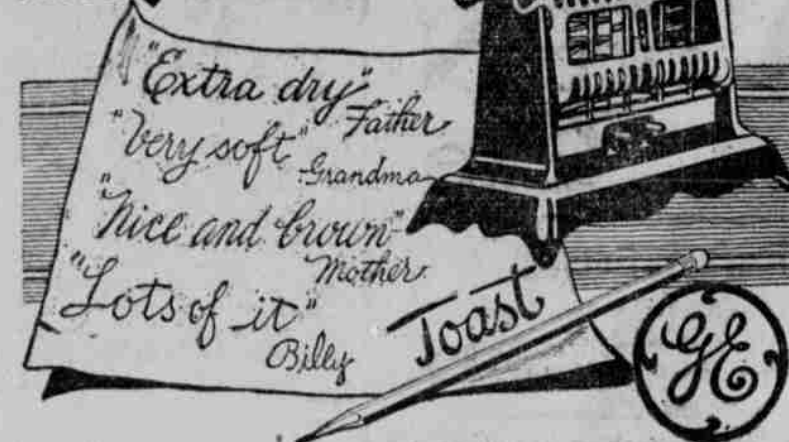 "Extra dry"
Father
"Very soft"
Grandma
"Nice and brown"
Mother
"Lots of it"
Billy
Toast
GE